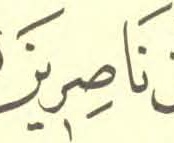 نَاصِرِينَ